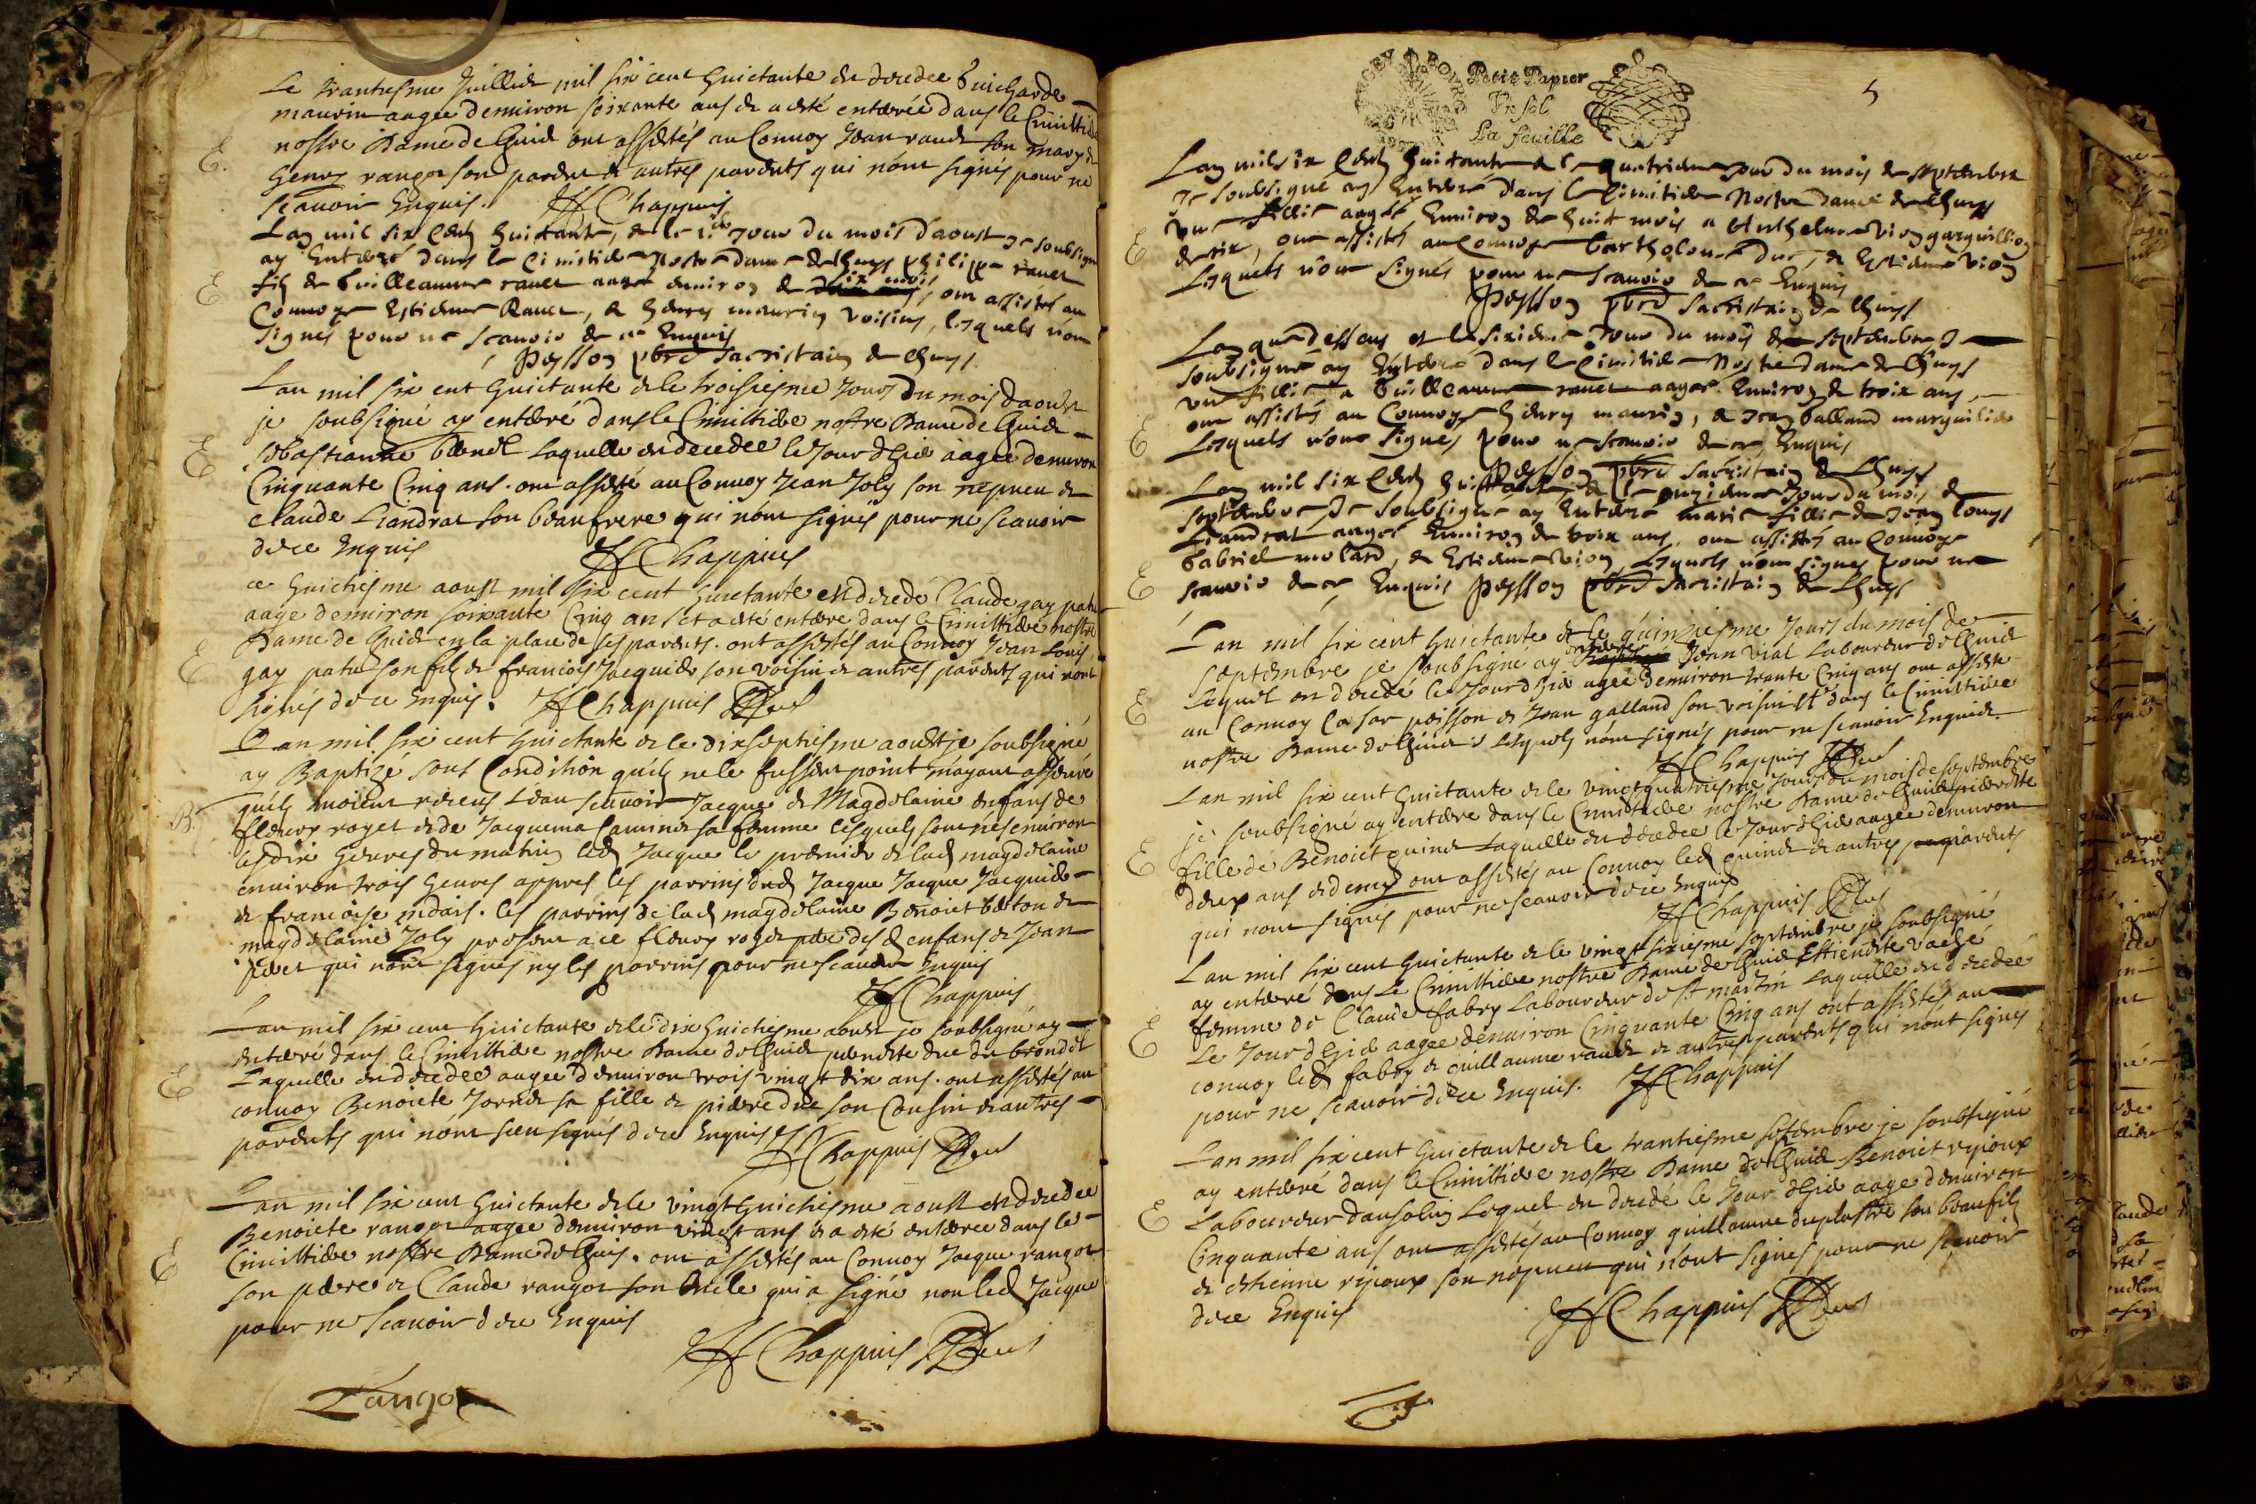 Le trantiesme Juilliet mil six cent huictante est decedee Guicharde
maurin aagee denuiron soixante ans et a esté enterée dans le Cimiltiere
nostre Dame de lhuis ont assistés au Conuoy Jean rauet son mary et
henry rangot son parent et autres parents qui nont signés pour ne
E.
scauoir Enquis. Chappuis
Lan mil six Cents huictante, et le jour du mois d'aoust Je soubsigné
ay Enterré dans le Cimitiere Nostre dame de lhuys philippe rauet
fils de Guilleaume rauet aagé enuiron de six mois, ont assistés au
E
Conuoye Estienne Rauet, et henry maurin voisins, lesquels nont
signés pour ne scauoir de ce Enquis
Peysson pbre Sacristain de lhuys
Lan mil six cent huictante et le troisiesme Jour du mois daoust
je soubsigné ay enterré dans le Cimiltiere nostre Dame de lhuis
E
Sebastianne laquelle est decedee le Jour dhier aagee denuiron
Cinquante Cinq ans. ont assisté au Conuoy Jean Joly son nepueu et
Claude Liandrat son beaufrere qui nont signés pour ne scauoir
de ce Enquis Chappuis
ce huictiesme aoust mil six cent huictante est decedé Claude gay patu
aagé denuiron soixante Cinq ans et a esté enterré dans le Cimiltiere nostre
E
Dame de lhuis en la place de ses parents. ont assistés au Conuoy Jean Louis
gay patu son fils et francois Jacquier son voisin et autres parents qui nont
signés de ce Enquis. Chappuis
Lan mil six cent huictante et le dixseptiesme aoust je soubsigné
ay Baptizé sous Condition quils ne le fussent point mayant asseuré
B.
quils auoient receus Leau scauoir Jacque et Magdelaine enfans de
fleury roget et de Jacquema Camine sa femme lesquels sont nés enuiron
les dix heures du matin led Jacque le premier et lad magdelaine
enuiron trois heures appres les parrins dud Jacque Jacque Jacquier
et francoise les parrins de lad magdelaine Benoiet beton et
magdelaine Joly present a ce fleury roget pere desd enfans et Jean
qui nont signés ny les parrins pour ne scauoir Enquis
Chappuis
Lan mil six cent huictante et le dix huictiesme aoust je soubsigné ay
enterré dans le Cimiltiere nostre Dame de lhuis pernette duc du brondet
E
Laquelle est decedee aagee denuiron trois vingt dix ans. ont assistés au
conuoy Benoiete sa fille et pierre duc son Cousin et autres
parents qui nont sceu signés de ce Enquis Chappuis
Lan mil six cent huictante et le vingt huictiesme aoust est decedee
Benoiete rangot aagee denuiron vingt ans et a esté enterree dans le
E
Cimiltiere nostre Dame de lhuis. ont assistés au Conuoy Jacque rangot
son pere et Claude rangot son oncle qui a signé non led Jacque
pour ne scauoir de ce Enquis
Chappuis
Rangot
Petit Papier
Vn sol
La feuille
5
Lan mil six Cents huictante et le quatrieme jour du mois de septembre
Je soubsigné ay Enterré dans le Cimitiere Nostre dame de lhuys
vne fillie aagée Enuiron de huict mois a Anthelme vion
E
ont assistés au Conuoye bartholome duc, et Estienne vion
Lesquels n'ont signés pour ne scauoir de ce Enquis
Peysson pbre Sacristain de lhuys
Lan que dessus et le sixieme Jour du mois de septembre Je
soubsigné ay Enterré dans le Cimitiere Nostre dame de lhuys
vne fillie a Guilleaume rauet aagee Enuiron de troix ans,
ont assistés au Conuoye henry maurin, et Jean balland marguillier
E
Lesquels n'ont signés pour ne scauoir de ce Enquis
Peysson pbre Sacristain de lhuys
Lan mil six Cents huictante, et le onzieme jour du mois de
septembre Je soubsigné ay Enterré marie fillie de Jean Louys
Liandrat aagee Enuiron de troix ans, ont assistés au Conuoye
Gabriel molard, et Estienne vion, Lesquels n'ont signés pour ne
E
scauoir de ce Enquis Peysson pbre Sacristain de lhuys
Lan mil six cent huictante et le quinziesme Jours du mois de
septembre je soubsigné ay enterré Jean vial Laboureur de lhuis
E
Lequel est decedé le Jour dhier agee denuiron trante Cinq ans ont assisté
au Conuoy Cesar peisson et Jean galland son voisin et dans le Cimiltiere
nostre Dame de lhuis Lesquels nont signés pour ne scauoir Enquis
Chappuis
Lan mil six cent huictante et le vingtquatriesme Jours du mois de septembre
je soubsigné ay enterré dans le Cimiltiere nostre Dame de lhuis
E
fille de Benoiet Laquelle est decedee le Jour dhier aagee denuiron
deux ans et demy ont assistés au Conuoy led et autres parents
qui nont signés pour ne scauoir de ce Enquis
Chappuis
Lan mil six cent huictante et le vingt sixiesme septembre je soubsigné
ay enterré dans Le Cimiltiere nostre Dame de lhuis Estiennete vaché
E
femme de Claude fabry Laboureur de St martin Laquelle est decedée
Le Jour dhier aagee denuiron Cinquante Cinq ans ont assistés au
conuoy led fabry et guillaume rauet et autres parents qui nont signés
pour ne scauoir de ce Enquis. Chappuis
Lan mil six cent huictante et le trantiesme septembre je soubsigné
ay enterré dans le Cimiltiere nostre Dame de lhuis Benoiet rijoux
E
Laboureur dansolin Lequel est decedé le Jour dhier aagé denuiron
Cinquante ans ont assistés au Conuoy guillaume duplastre son beaufils
et estienne rijoux son nepueu qui nont signés pour ne scauoir
de ce Enquis
Chappuis